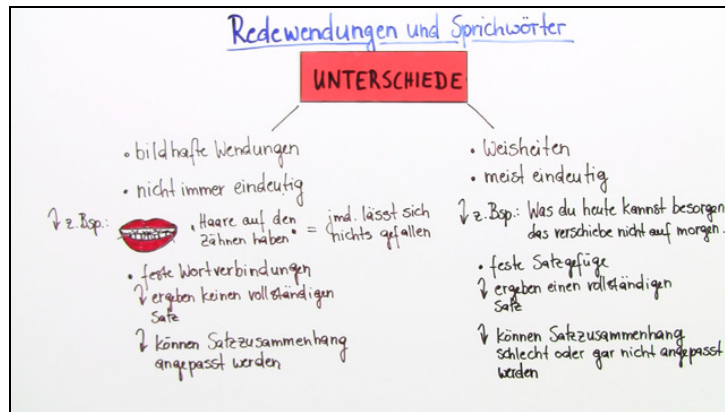 Redewendungen und Sprichwörter
UNTERSCHIEDE
• bildhafte Wendungen
• nicht immer eindeutig
↳ z.Bsp.: "Haare auf den
Zähnen haben" = jmd. lässt sich
nichts gefallen
• feste Wortverbindungen
↳ ergeben keinen vollständigen
Satz
↳ können Satzzusammenhang
angepasst werden
• Weisheiten
• meist eindeutig
↳ z.Bsp.: Was du heute kannst besorgen,
das verschiebe nicht auf morgen.
• feste Satzgefüge
↳ ergeben einen vollständigen
Satz
↳ können Satzzusammenhang
schlecht oder gar nicht angepasst
werden